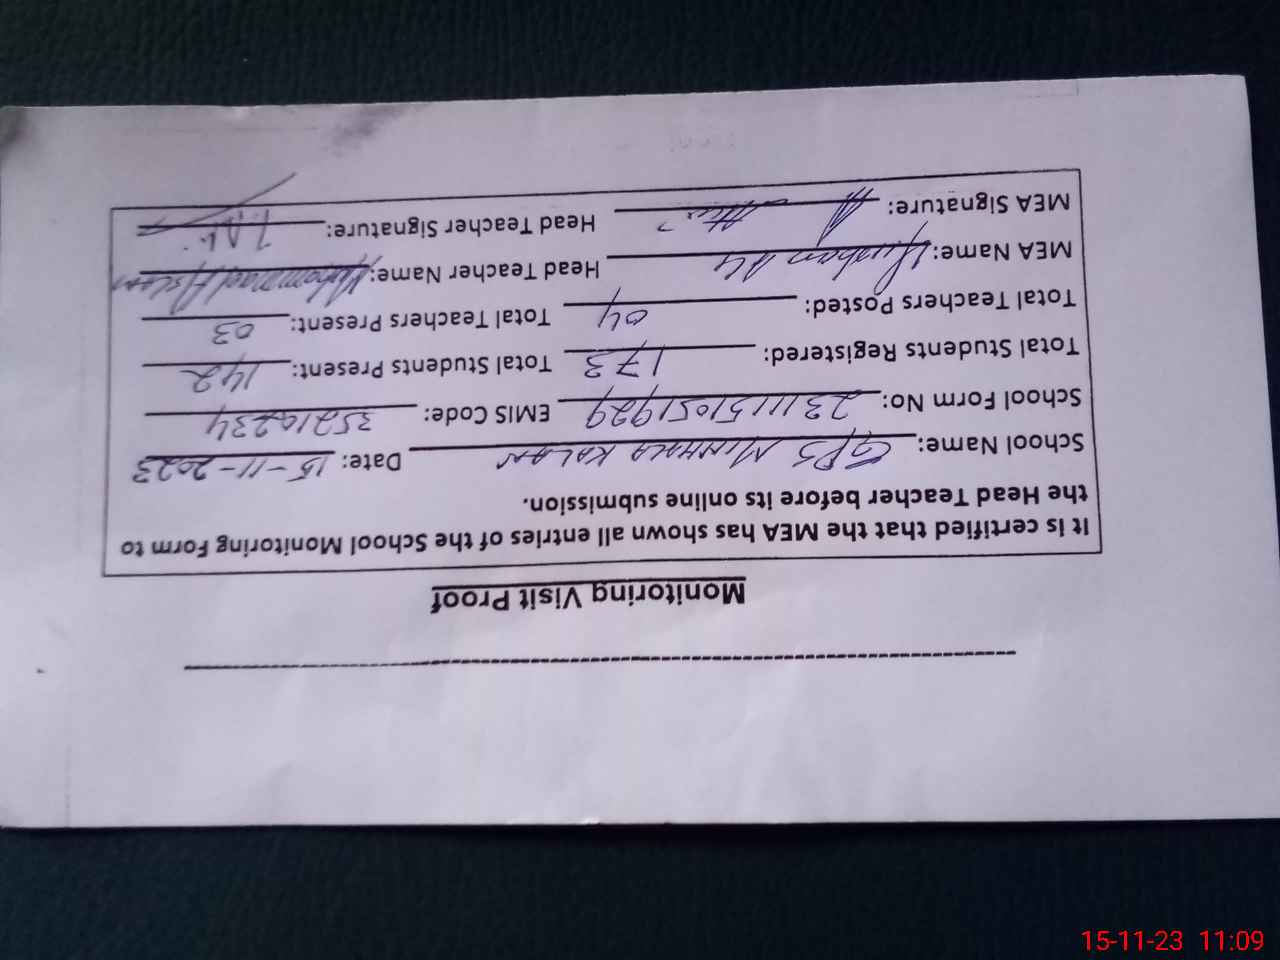 Monitoring Visit Proof
It is certified that the MEA has shown all entries of the School Monitoring Form to
the Head Teacher before its online submission.
School Name: GPS MINHALA KALAN Date: 15-11-2023
School Form No: 2311151051929 EMIS Code: 35210234
Total Students Registered: 173 Total Students Present: 142
Total Teachers Posted: 04 Total Teachers Present: 03
MEA Name: Head Teacher Name: Muhammad Aslam
MEA Signature: Head Teacher Signature:
15-11-23 11:09